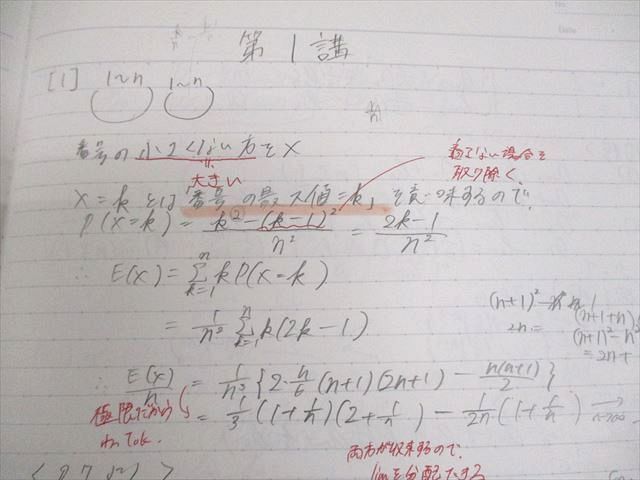 第1講
[1] 1~n 1~n
番号の小さくない方をX
大きい
含まない場合を
取り除く
X=kとは「番号の最大値=k」を意味するので、
P(X=k) = \frac{k^2-(k-1)^2}{n^2} = \frac{2k-1}{n^2}
∴ E(X) = \sum_{k=1}^{n} kP(X=k)
= \frac{1}{n^2} \sum_{k=1}^{n} k(2k-1)
(n+1)^2
2n=
(n+1+n)
(n+1)^2-n^2
=2n+
∴ \frac{E(X)}{n} = \frac{1}{n^3} \{2·\frac{n}{6}(n+1)(2n+1) - \frac{n(n+1)}{2}\}
= \frac{1}{3}(1+\frac{1}{n})(2+\frac{1}{n}) - \frac{1}{2n}(1+\frac{1}{n}) \xrightarrow{n→∞}
極限だから
両方が収束するので、
limを分配できる